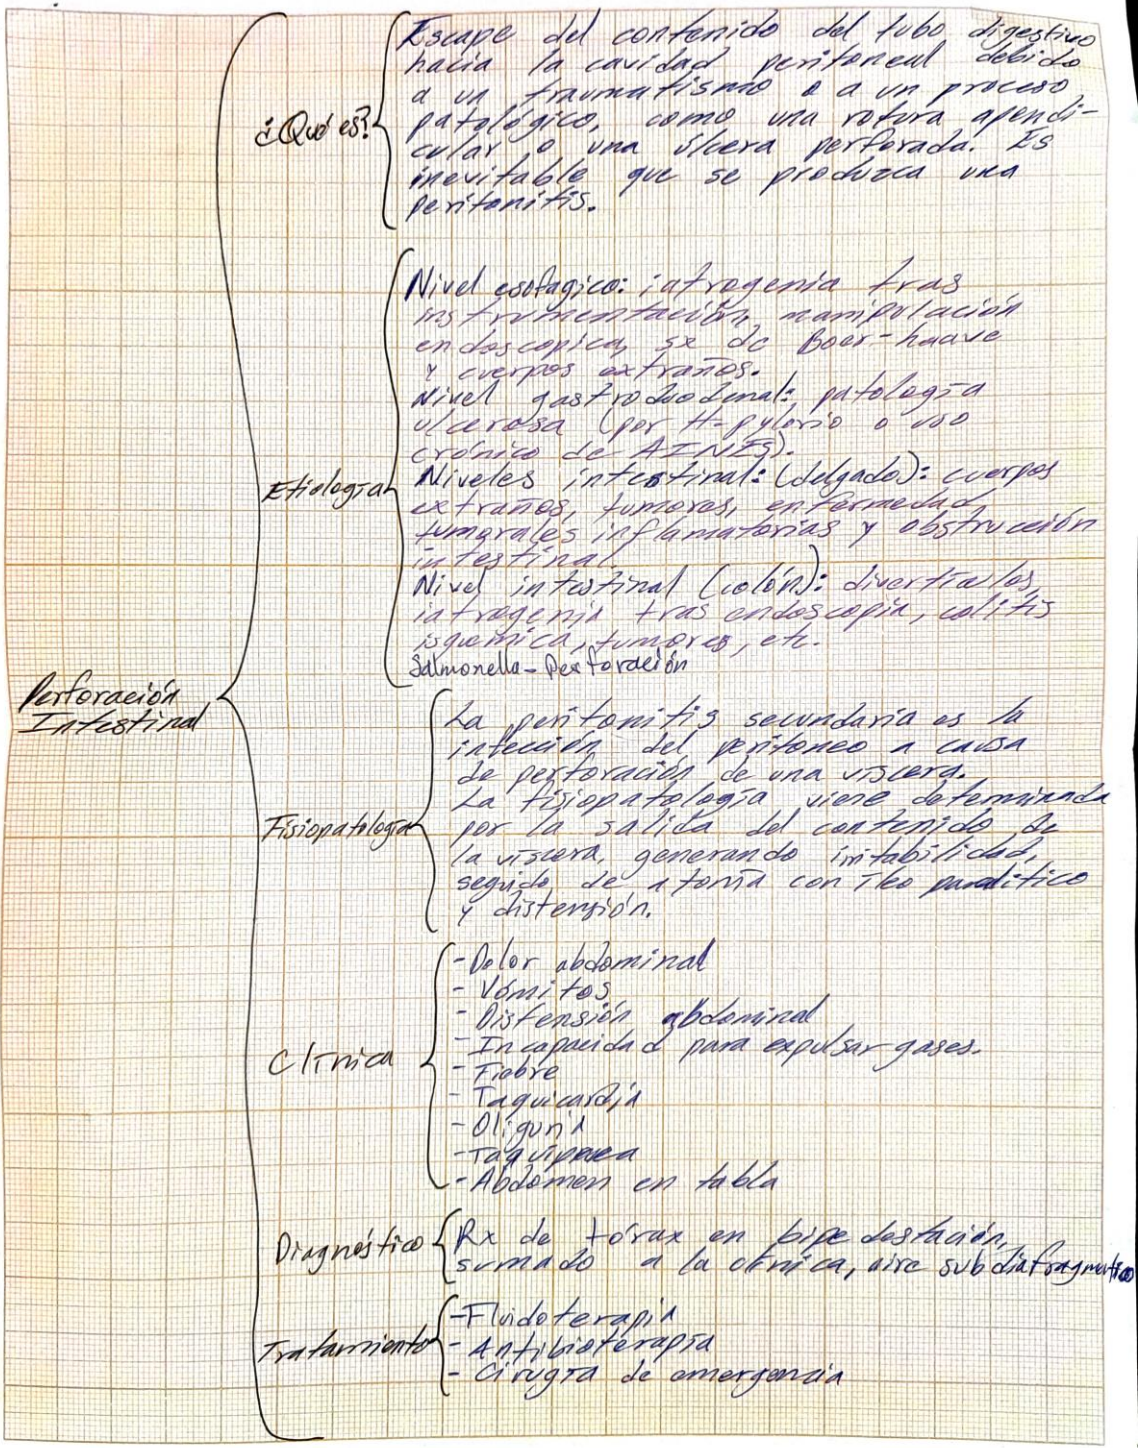 Perforación
Intestinal
¿Qué es?
Escape del contenido del tubo digestivo
hacia la cavidad peritoneal debido
a un traumatismo o a un proceso
patológico, como una rotura apendi-
cular o una úlcera perforada. Es
inevitable que se produzca una
peritonitis.
Etiología
Nivel esofagico: iatrogenia tras
instrumentación, manipulación
endoscopica, sx de Boer-haave
y cuerpos extraños.
Nivel gastroduodenal: patología
ulcerosa (por H-pylorio o uso
crónico de AINES).
Niveles intestinal: (delgado): cuerpos
extraños, tumores, enfermedad
tumorales inflamatorias y obstrucción
intestinal.
Nivel intestinal (colón): divertículos,
iatrogenia tras endoscopia, colitis
isquemica, tumores, etc.
Salmonella - Perforación
Fisiopatología
La peritonitis secundaria es la
infección del peritoneo a causa
de perforación de una víscera.
La fisiopatología viene determinada
por la salida del contenido de
la víscera, generando irritabilidad,
seguido de atonía con íleo paralítico
y distensión.
Clínica
- Dolor abdominal
- Vómitos
- Distensión abdominal
- Incapacidad para expulsar gases.
- Fiebre
- Taquicardia
- Oliguria
- Taquipnea
- Abdomen en tabla
Diagnóstico
Rx de tórax en bipedestación,
sumado a la clínica, aire subdiafragmático
Tratamiento
- Fluidoterapia
- Antibioterapia
- Cirugía de emergencia